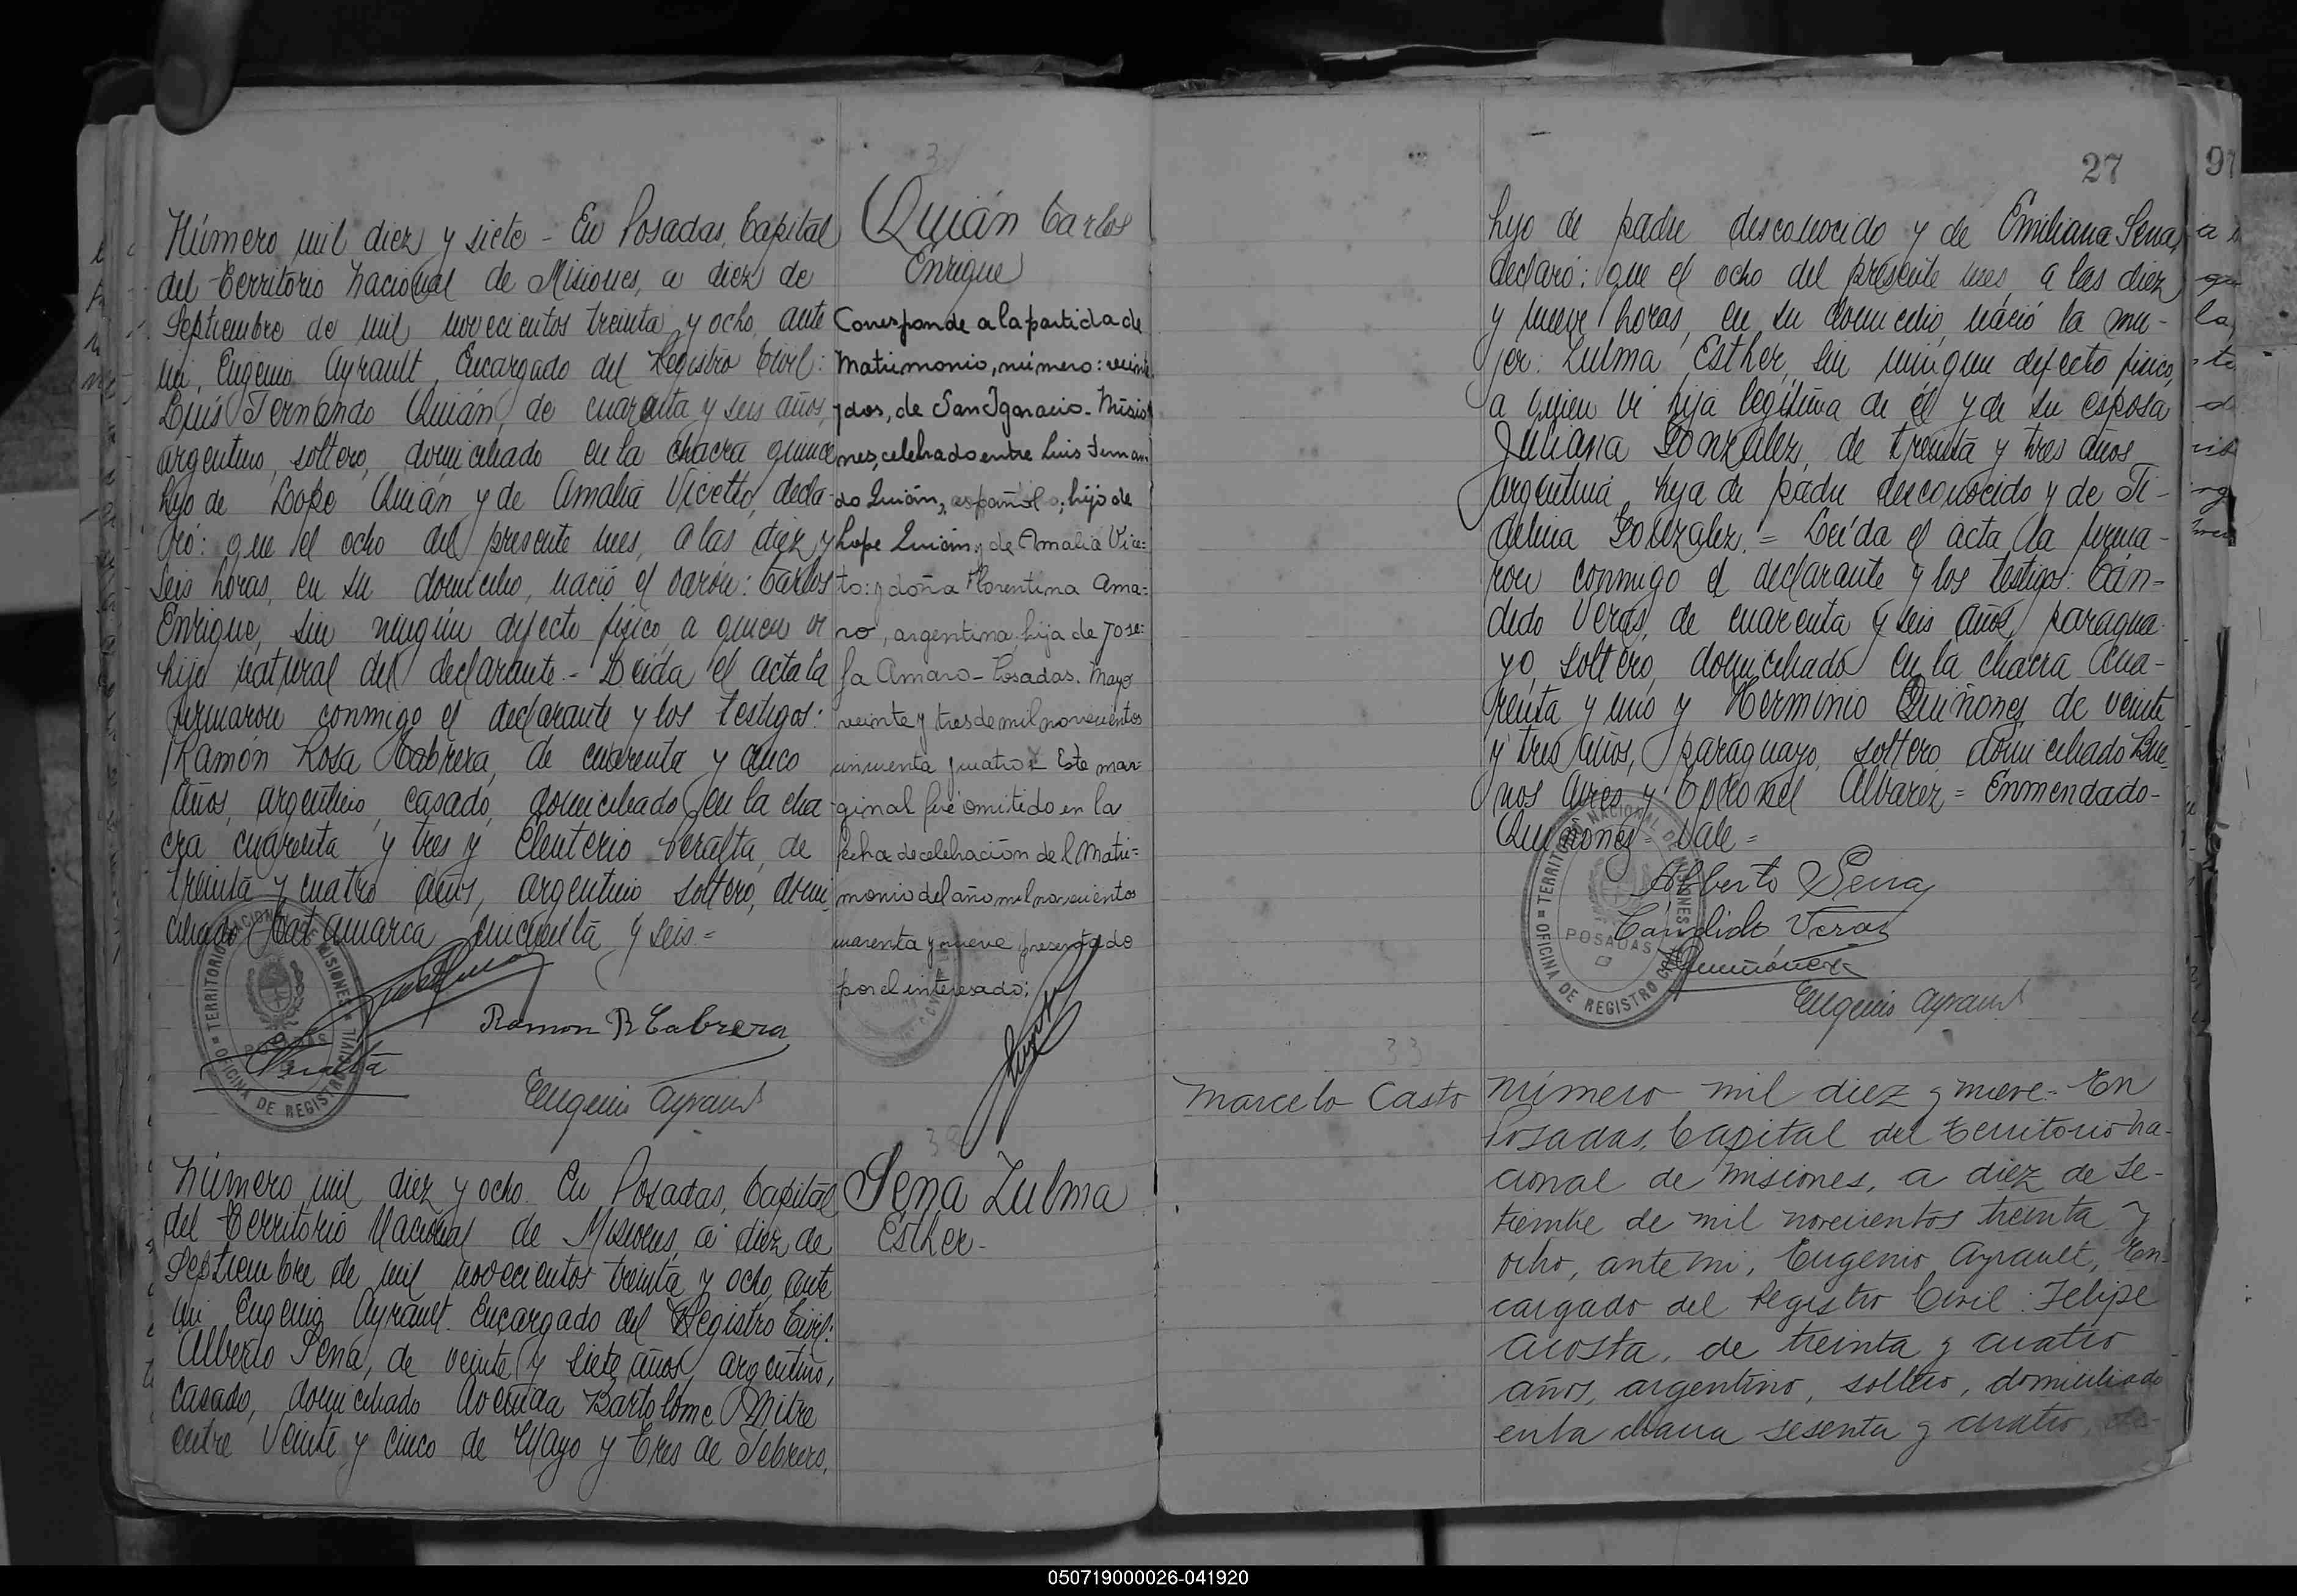 Número mil diez y siete - En Posadas, Capital
del Territorio Nacional de Misiones, a diez de
Septiembre de mil novecientos treinta y ocho, ante
mi, Eugenio Ayrault, Encargado del Registro Civil:
Luis Fernando Quián, de cuarenta y seis años,
argentino, soltero, domiciliado en la chacra quince
hijo de Lope Quián y de Amalia Vicetto, decla-
ró: que el ocho del presente mes, a las diez y
seis horas, en su domicilio, nació el varón: Carlos
Enrique, sin ningún defecto físico, a quien vi
hijo natural del declarante.- Leida el acta la
firmaron conmigo el declarante y los testigos:
Ramón Rosa Cabrera, de cuarenta y cinco
años, argentino, casado, domiciliado en la cha-
cra cuarenta y tres y Eleuterio Peralta, de
treinta y cuatro años, argentino soltero, domi-
ciliado Catamarca cincuenta y seis =
Ramon R Cabrera
Peralta
Eugenio Ayrault
TERRITORIO NACIONAL DE MISIONES
POSADAS
OFICINA DE REGISTRO CIVIL
Quián Carlos
Enrique
Corresponde a la partida de
Matrimonio, número: veinti
ydos, de San Ignacio - Misio
nes, celebrado entre Luis Fernan
do Quián, español, hijo de
Lope Quián y de Amalia Vice=
to: y doña Florentina Ama=
ro, argentina, hija de Jose=
fa Amaro - Posadas. Mayo
veinte y tres de mil novecientos
cincuenta y cuatro - Este mar-
ginal fué omitido en la
fecha de celebración del Matri=
monio del año mil novecientos
cuarenta y nueve presentado
por el interesado;
Número mil diez y ocho. En Posadas, Capital
del Territorio Nacional de Misiones, a diez de
Septiembre de mil novecientos treinta y ocho, ante
mi Eugenio Ayrault. Encargado del Registro Civil:
Alberto Sena, de veinte y siete años, argentino,
casado, domiciliado Avenida Bartolome Mitre
entre Veinte y cinco de Mayo y Tres de Febrero,
Sena Zulma
Esther-
27
97
hijo de padre desconocido y de Emiliana Sena,
declaró: que el ocho del presente mes, a las diez
y nueve horas, en su domicilio, nació la mu-
jer: Zulma Esther, sin ningun defecto fisico,
a quien vi hija legítima de él y de su esposa
Juliana Gonzalez, de treinta y tres años
argentina, hija de padre desconocido y de Fi-
delina Gonzalez. = Leída el acta la firma-
ron conmigo el declarante y los testigos: Cán-
dido Veras, de cuarenta y seis años, paragua-
yo, soltero, domiciliado en la chacra cua-
renta y uno y Herminio Quiñones, de veinte
y tres años, paraguayo, soltero, domiciliado Bue-
nos Aires y Coronel Alvarez = Enmendado-
Quiñones = Vale =
Alberto Sena
Cándido Veras
Quiñonez
Eugenio Ayrault
TERRITORIO NACIONAL DE MISIONES
POSADAS
OFICINA DE REGISTRO CIVIL
33
Marcelo Casto
número mil diez y nueve.- En
Posadas, Capital del Territorio Na-
cional de Misiones, a diez de Se-
tiembre de mil novecientos treinta y
ocho, ante mi, Eugenio Ayrault, En-
cargado del Registro Civil: Felipe
Acosta, de treinta y cuatro
años, argentino, soltero, domiciliado
en la chacra sesenta y cuatro,
050719000026-041920